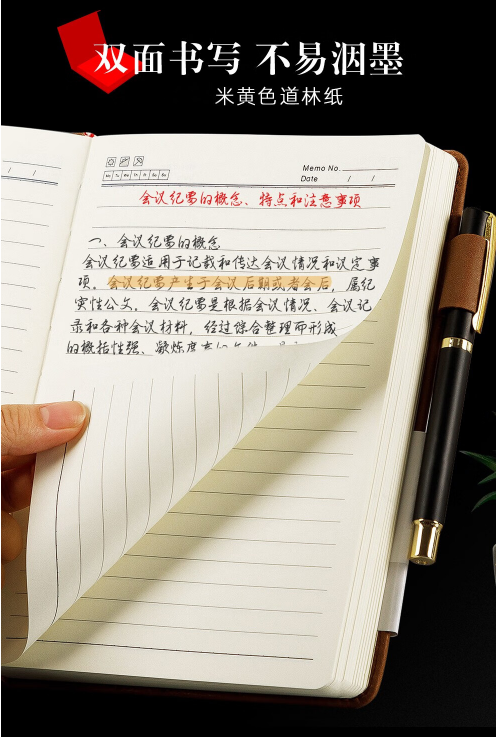 双面书写 不易洇墨
米黄色道林纸
Memo No.
Mo Tu We Th Fr Sa Su
Date / /
会议纪要的概念、特点和注意事项
一、会议纪要的概念
会议纪要适用于记载和传达会议情况和议定事
项。会议纪要产生于会议后期或者会后，属纪
实性公文。会议纪要是根据会议情况、会议记
录和各种会议材料，经过综合整理而形成
的概括性强、凝炼度高的文件